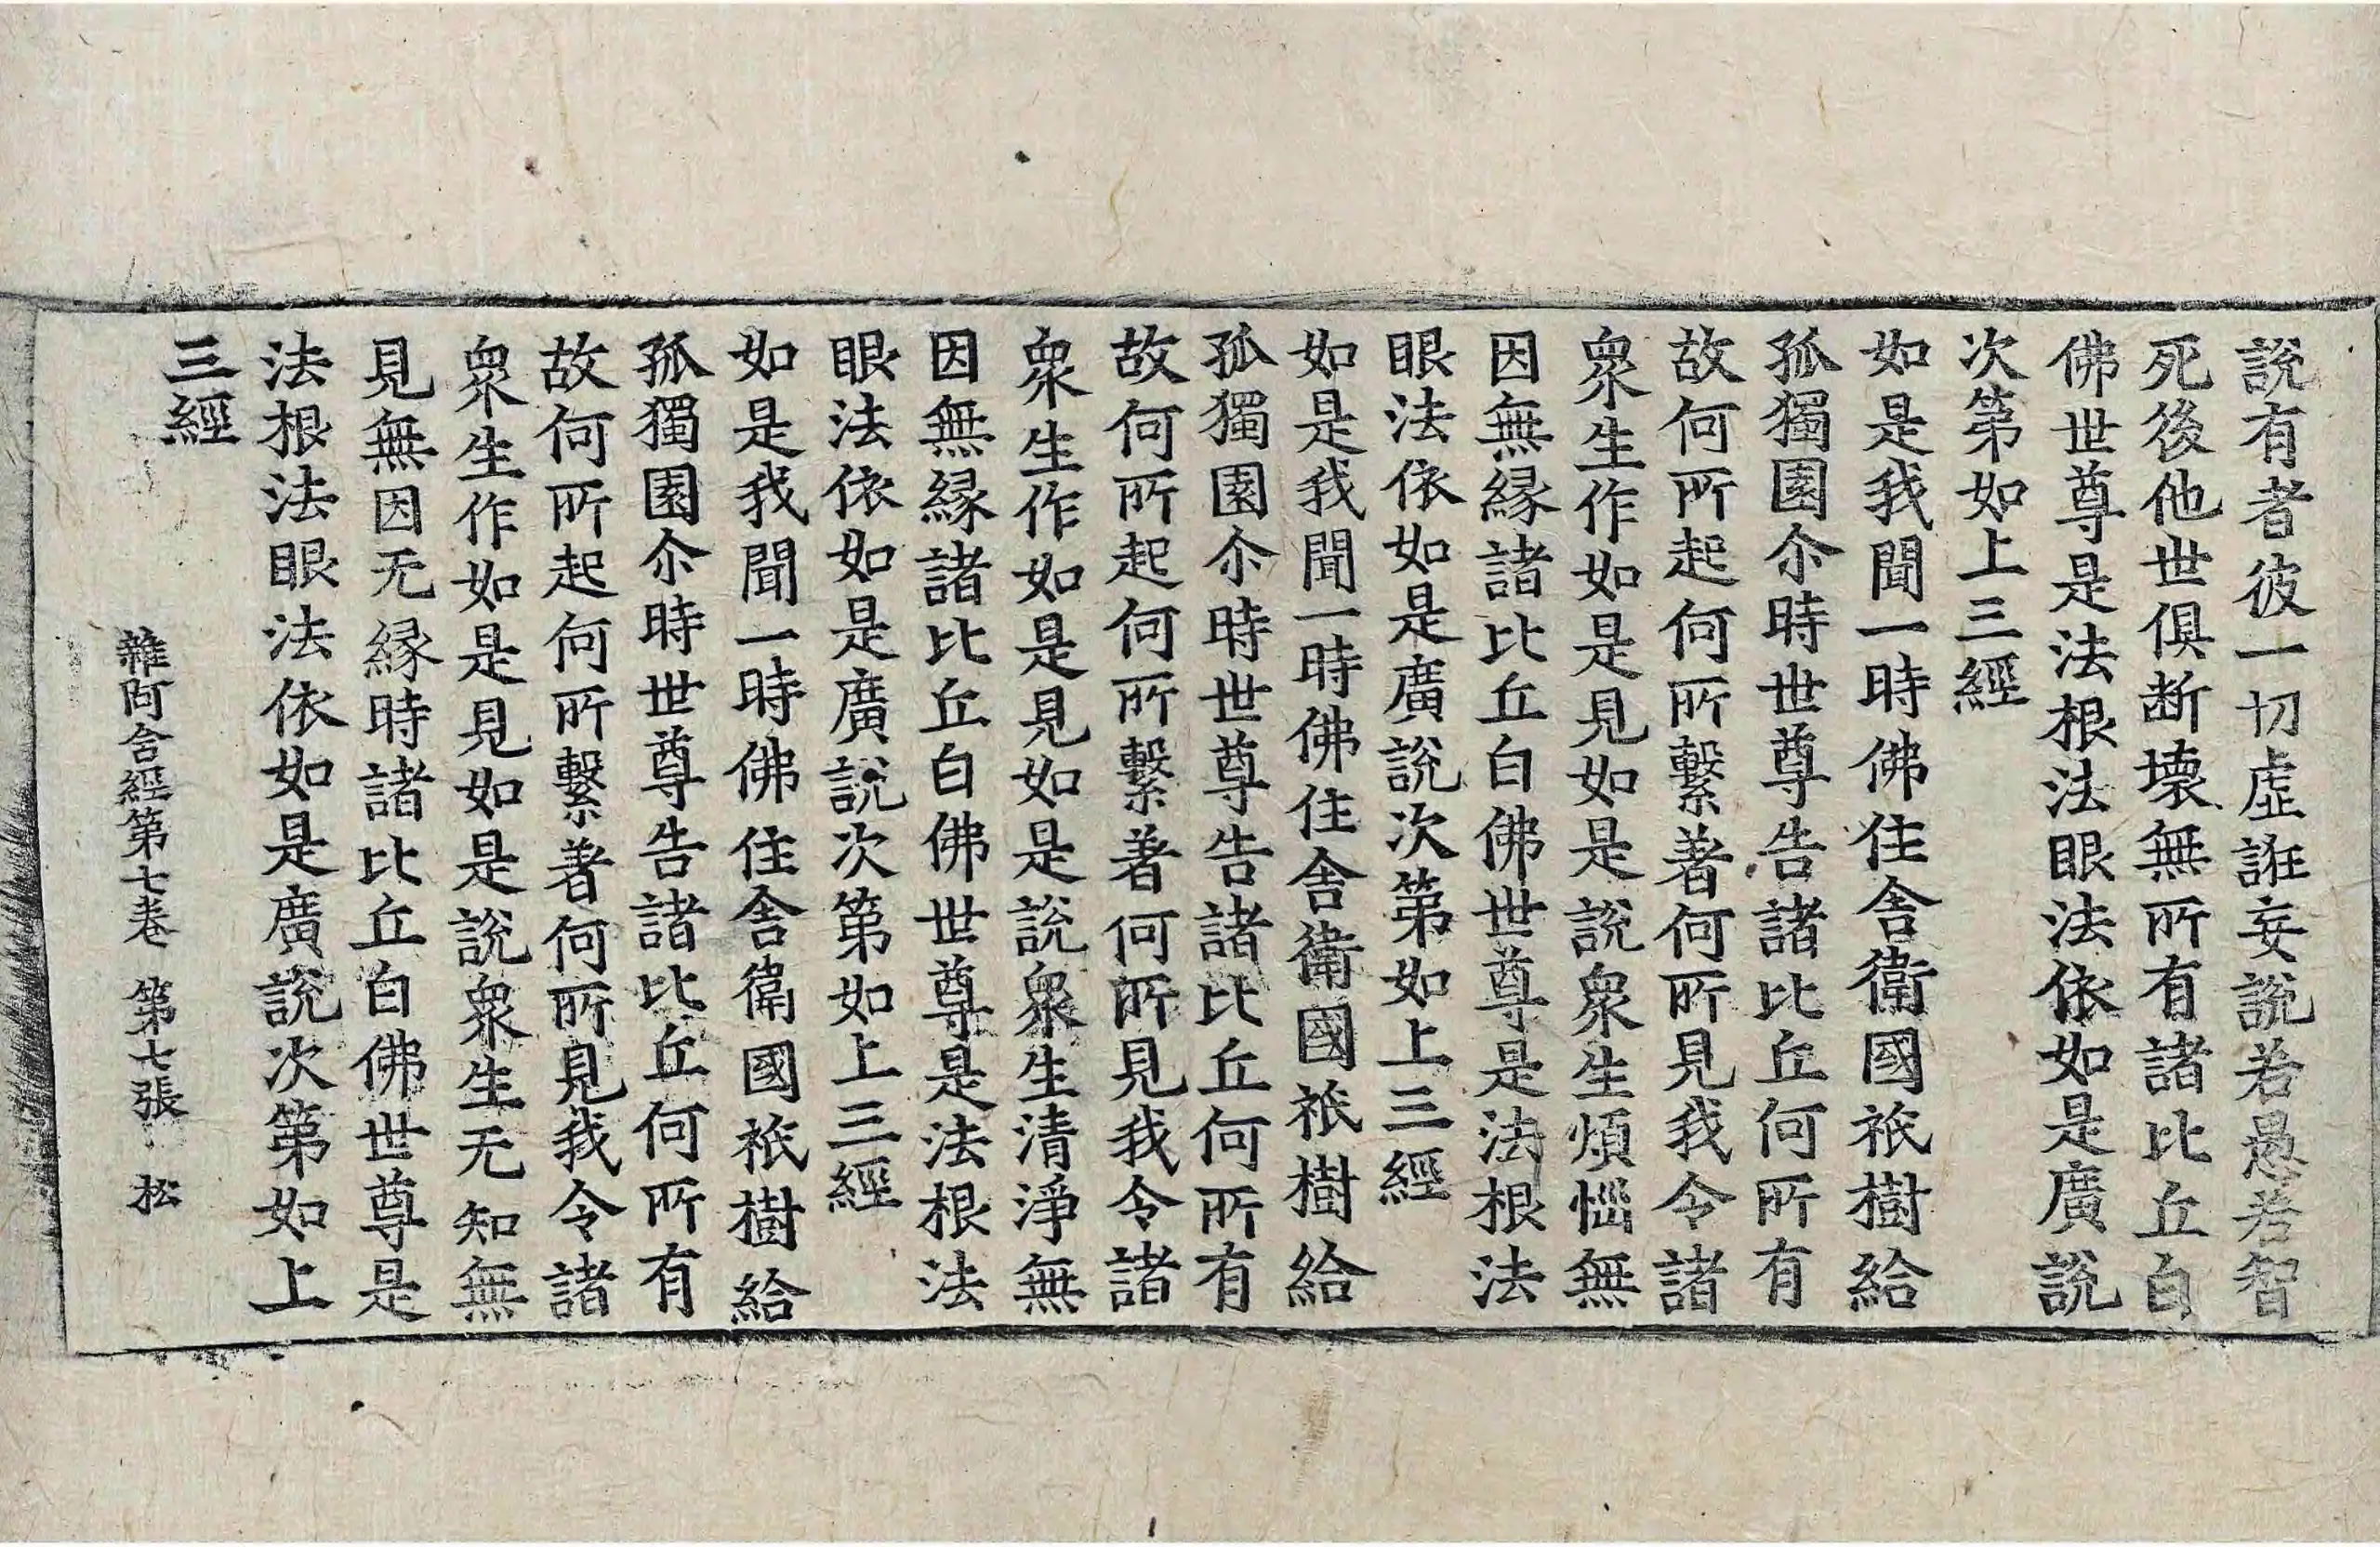 說有者彼一切虛誑妄說若愚若智
死後他世俱断壞無所有諸比丘白
佛世尊是法根法眼法依如是廣說
次第如上三經
如是我聞一時佛住舎衛國祇樹給
孤獨園尒時世尊告諸比丘何所有
故何所起何所繫著何所見我令諸
衆生作如是見如是說衆生煩惱無
因無縁諸比丘白佛世尊是法根法
眼法依如是廣說次第如上三經
如是我聞一時佛住舎衛國祇樹給
孤獨園尒時世尊告諸比丘何所有
故何所起何所繫著何所見我令諸
衆生作如是見如是說衆生清淨無
因無縁諸比丘白佛世尊是法根法
眼法依如是廣說次第如上三經
如是我聞一時佛住舎衛國祇樹給
孤獨園尒時世尊告諸比丘何所有
故何所起何所繫著何所見我令諸
衆生作如是見如是說衆生无知無
見無因无縁時諸比丘白佛世尊是
法根法眼法依如是廣說次第如上
三經
雜阿含經第七卷 第七張 松